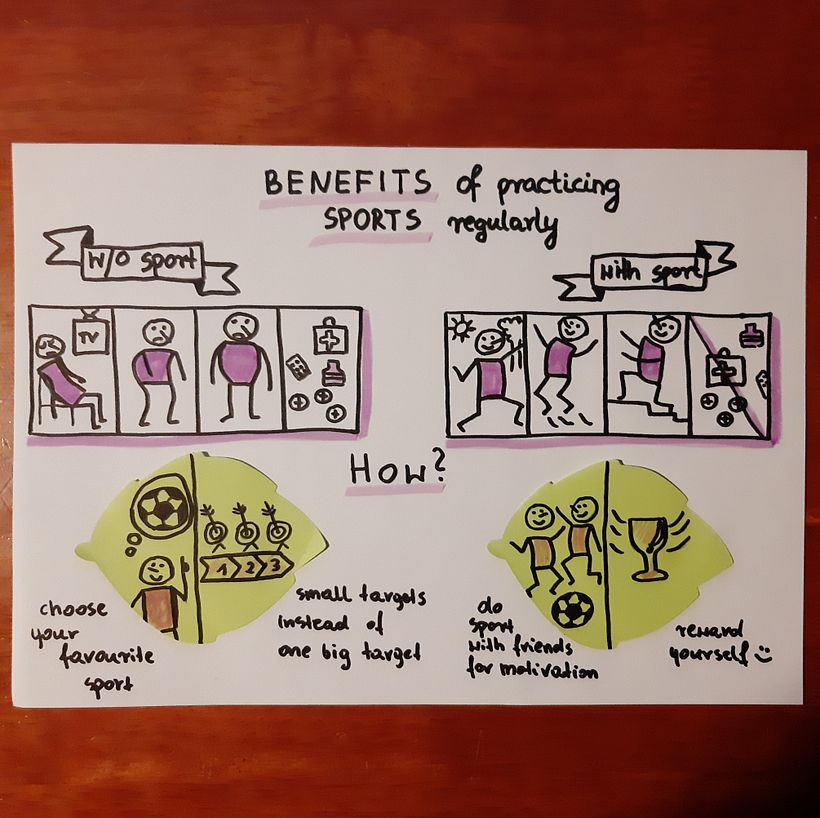 BENEFITS of practicing
SPORTS regularly
W/O sport
With sport
TV
How?
1 2 3
choose
your
favourite
sport
small targets
instead of
one big target
do
sport
with friends
for motivation
reward
yourself :)